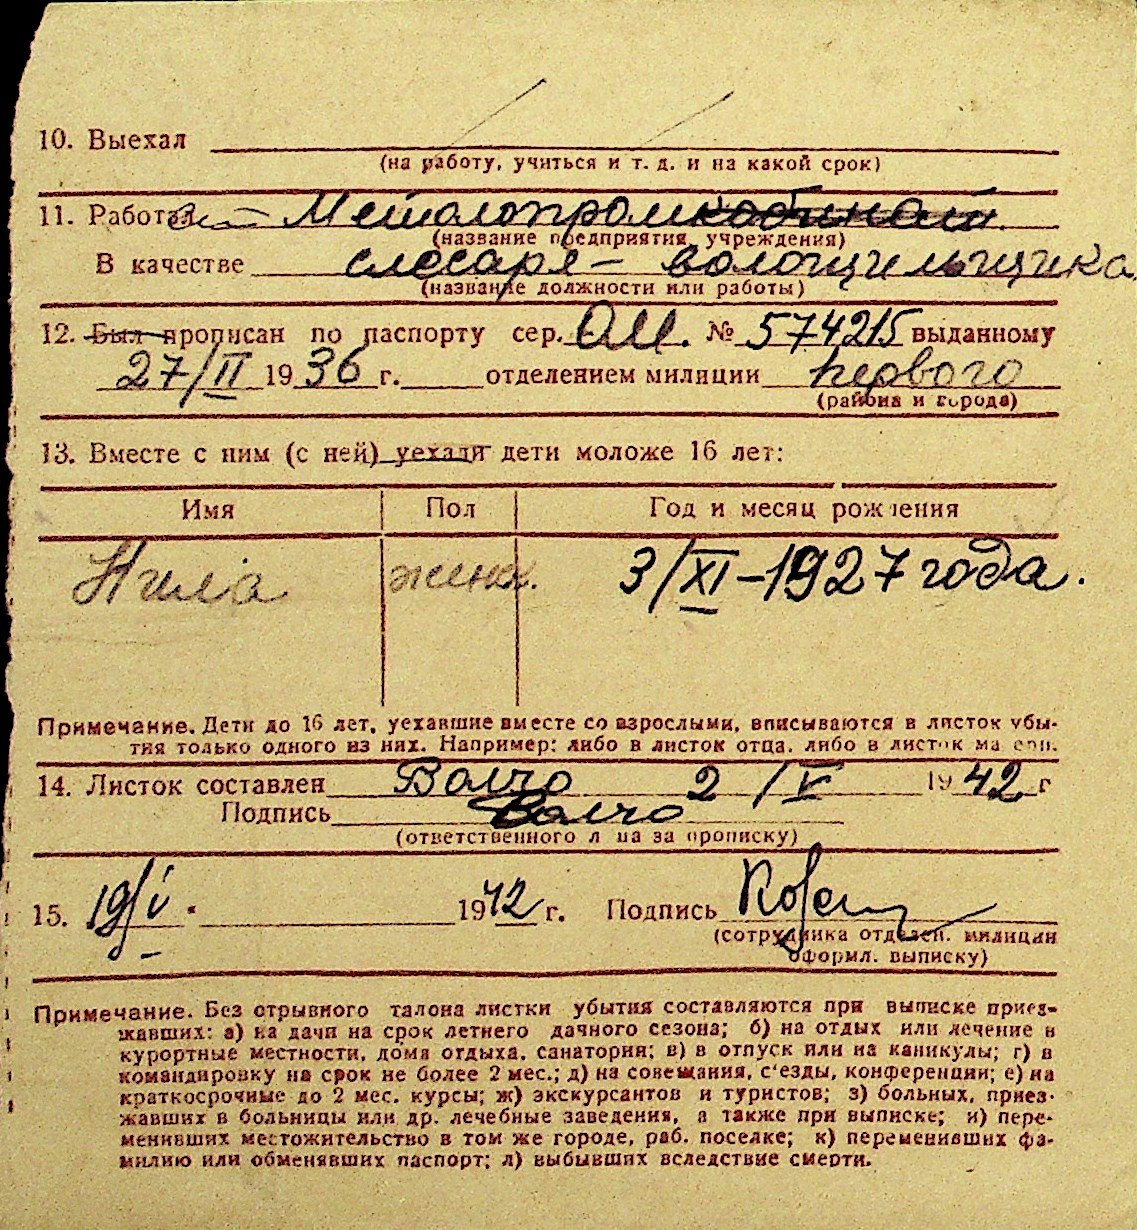 10. Выехал
(на работу, учиться и т. д. и на какой срок)
11. Работал Металопромкобинат.
(название предприятия учреждения)
В качестве слесаря – волочильщика
(название должности или работы)
12. Был прописан по паспорту сер. ОМ. № 574215 выданному
27/II 1936 г. отделением милиции первого
(района и города)
13. Вместе с ним (с ней) уехали дети моложе 16 лет:
Имя Пол Год и месяц рождения
Нила женк. 3/XI – 1927 года.
Примечание. Дети до 16 лет, уехавшие вместе со взрослыми, вписываются в листок убы-
тия только одного из них. Например: либо в листок отца, либо в листок матери.
14. Листок составлен Волчо 2/V 1942 г
Подпись Волчо
(ответственного лица за прописку)
15. 19/V 1942 г. Подпись
(сотрудника отделен. милиции
оформл. выписку)
Примечание. Без отрывного талона листки убытия составляются при выписке приез-
жавших: а) на дачи на срок летнего дачного сезона; б) на отдых или лечение в
курортные местности, дома отдыха, санатория; в) в отпуск или на каникулы; г) в
командировку на срок не более 2 мес.; д) на совещания, с'езды, конференции; е) на
краткосрочные до 2 мес. курсы; ж) экскурсантов и туристов; з) больных, приез-
жавших в больницы или др. лечебные заведения, а также при выписке; и) пере-
менивших местожительство в том же городе, раб. поселке; к) переменивших фа-
милию или обменявших паспорт; л) выбывших вследствие смерти.